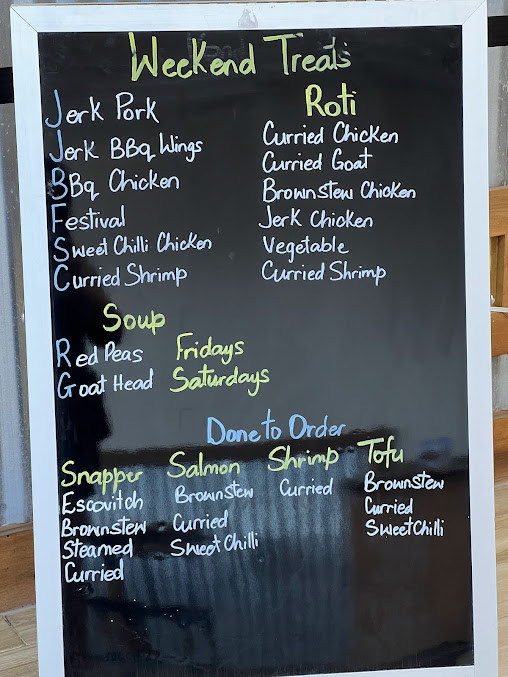 Weekend Treats
Jerk Pork
Jerk BBq Wings
BBq Chicken
Festival
Sweet Chilli Chicken
Curried Shrimp
Roti
Curried Chicken
Curried Goat
Brownstew Chicken
Jerk Chicken
Vegetable
Curried Shrimp
Soup
Red Peas Fridays
Goat Head Saturdays
Done to Order
Snapper
Escovitch
Brownstew
Steamed
Curried
Salmon
Brownstew
Curried
Sweet Chilli
Shrimp
Curried
Tofu
Brownstew
Curried
Sweet Chilli